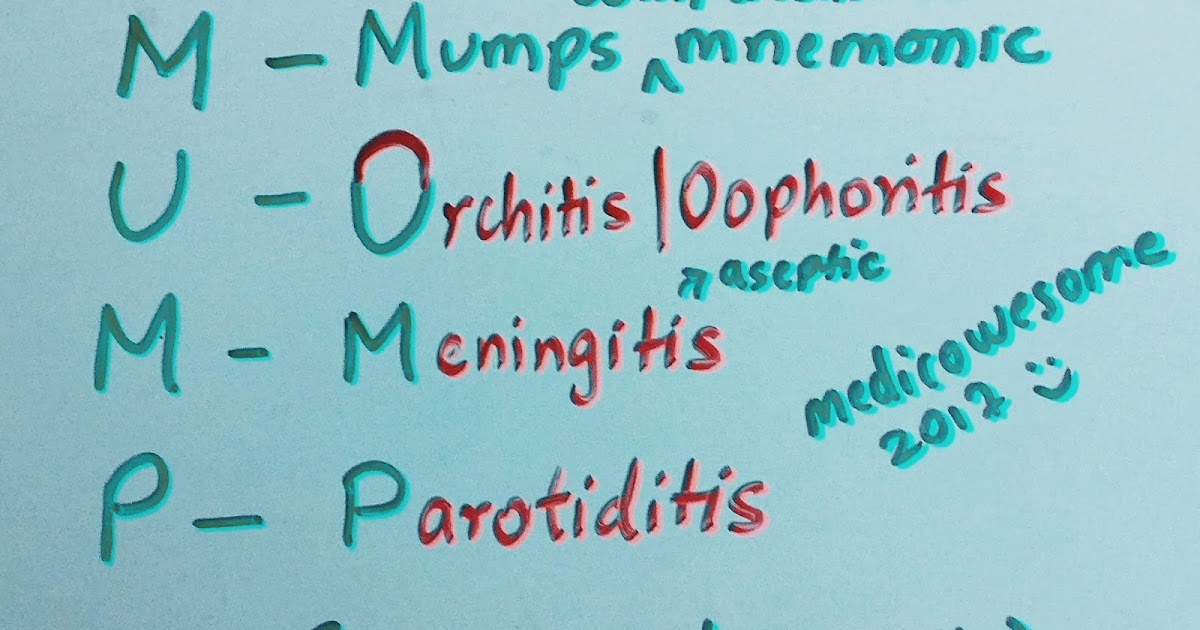 M - Mumps ^ mnemonic
U - Orchitis | Oophoritis
aseptic
M - Meningitis
medicowesome
2017 :)
P - Parotiditis